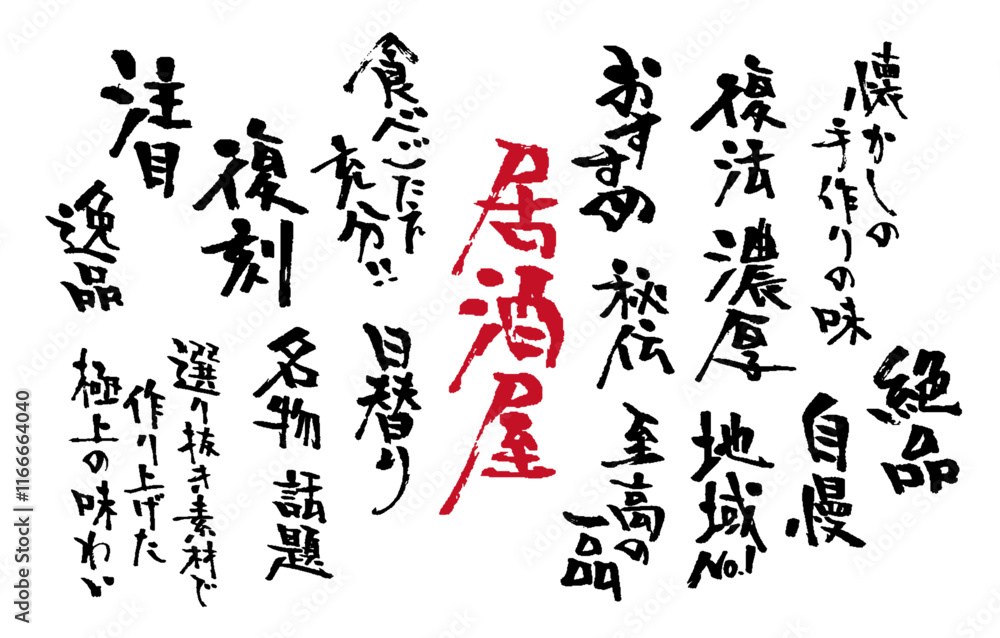 懐かしの
手作りの味
絶品
復活
濃厚
自慢
おすすめ
秘伝
地域No.1
至高の
一品
居酒屋
食べごたえ
充分!!
日替り
復刻
名物
話題
注目
逸品
選り抜き素材で
作り上げた
極上の味わい
Adobe Stock | #1166664040
Adobe Stock